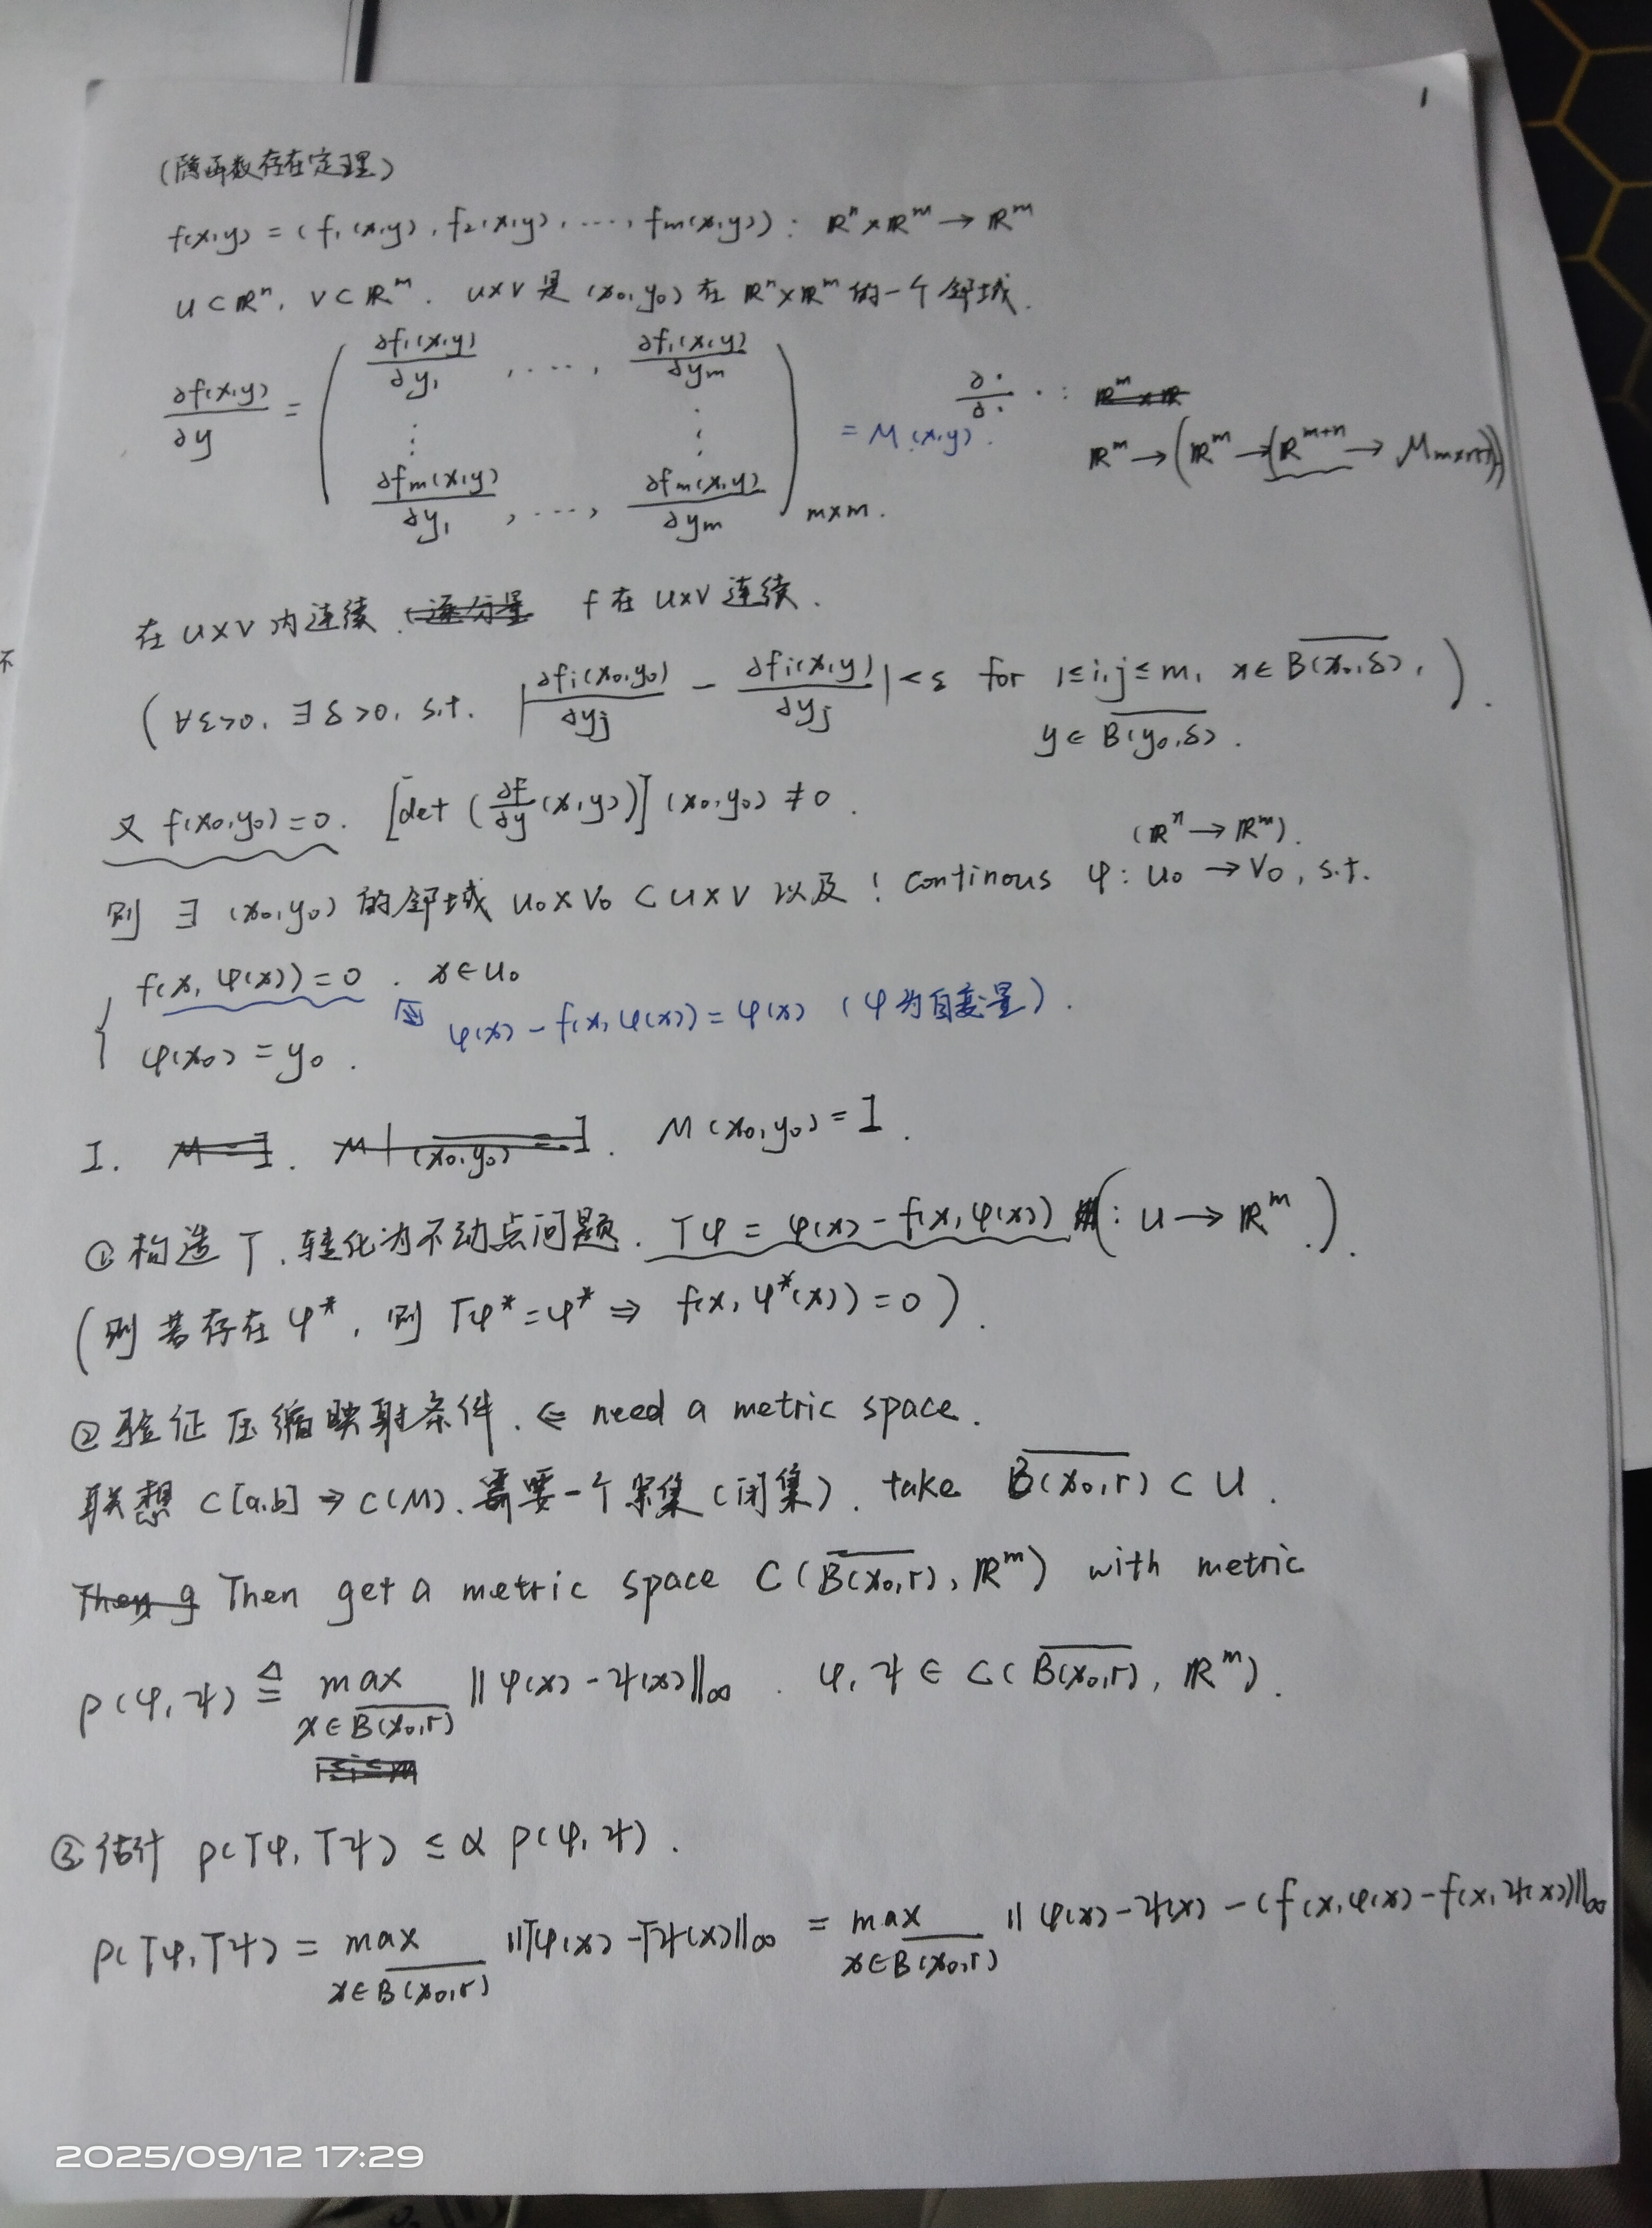 1
(隐函数存在定理)
f(x,y) = (f₁(x,y), f₂(x,y), ..., fm(x,y)): ℝⁿ×ℝᵐ → ℝᵐ
U⊂ℝⁿ, V⊂ℝᵐ. U×V 是 (x₀,y₀) 在 ℝⁿ×ℝᵐ 的一个邻域.
∂f(x,y)/∂y = ( ∂f₁(x,y)/∂y₁, ..., ∂f₁(x,y)/∂ym ⋮ ⋮ ∂fm(x,y)/∂y₁, ..., ∂fm(x,y)/∂ym )m×m. = M(x,y).
∂·/∂· · :
ℝᵐ→(ℝᵐ→(ℝᵐ⁺ⁿ→
在 U×V 内连续. f 在 U×V 连续.
(∀ε>0, ∃δ>0, s.t. |∂fi(x₀,y₀)/∂yj − ∂fi(x,y)/∂yj| < ε for 1≤i,j≤m, x∈B̅(x₀,δ),
y∈B̅(y₀,δ).).
又 f(x₀,y₀)=0. [det(∂f/∂y(x,y))](x₀,y₀)≠0.
(ℝⁿ→ℝᵐ).
则 ∃ (x₀,y₀) 的邻域 U₀×V₀⊂U×V 以及 ! continous φ: U₀→V₀, s.t.
{ f(x,φ(x))=0. x∈U₀
φ(x)−f(x,φ(x))=φ(x) (φ为自变量).
φ(x₀)=y₀.
I. M(x₀,y₀)=I.
①构造 T, 转化为不动点问题. Tφ = φ(x)−f(x,φ(x)) (: U→ℝᵐ.).
(则若存在φ*, 则 Tφ*=φ* ⇒ f(x,φ*(x))=0).
②验证压缩映射条件. ⇐ need a metric space.
联想 C[a,b] ⇒ C(M). 需要一个紧集(闭集). take B̅(x₀,r)⊂U.
Then get a metric space C(B̅(x₀,r), ℝᵐ) with metric
ρ(φ,ψ) ≜ max x∈B̅(x₀,r) ‖φ(x)−ψ(x)‖∞. φ,ψ∈C(B̅(x₀,r), ℝᵐ).
③估计 ρ(Tφ,Tψ) ≤ αρ(φ,ψ).
ρ(Tφ,Tψ) = max x∈B̅(x₀,r) ‖Tφ(x)−Tψ(x)‖∞ = max x∈B̅(x₀,r) ‖φ(x)−ψ(x)−(f(x,φ(x)−f(x,ψ(x))‖∞
2025/09/12 17:29